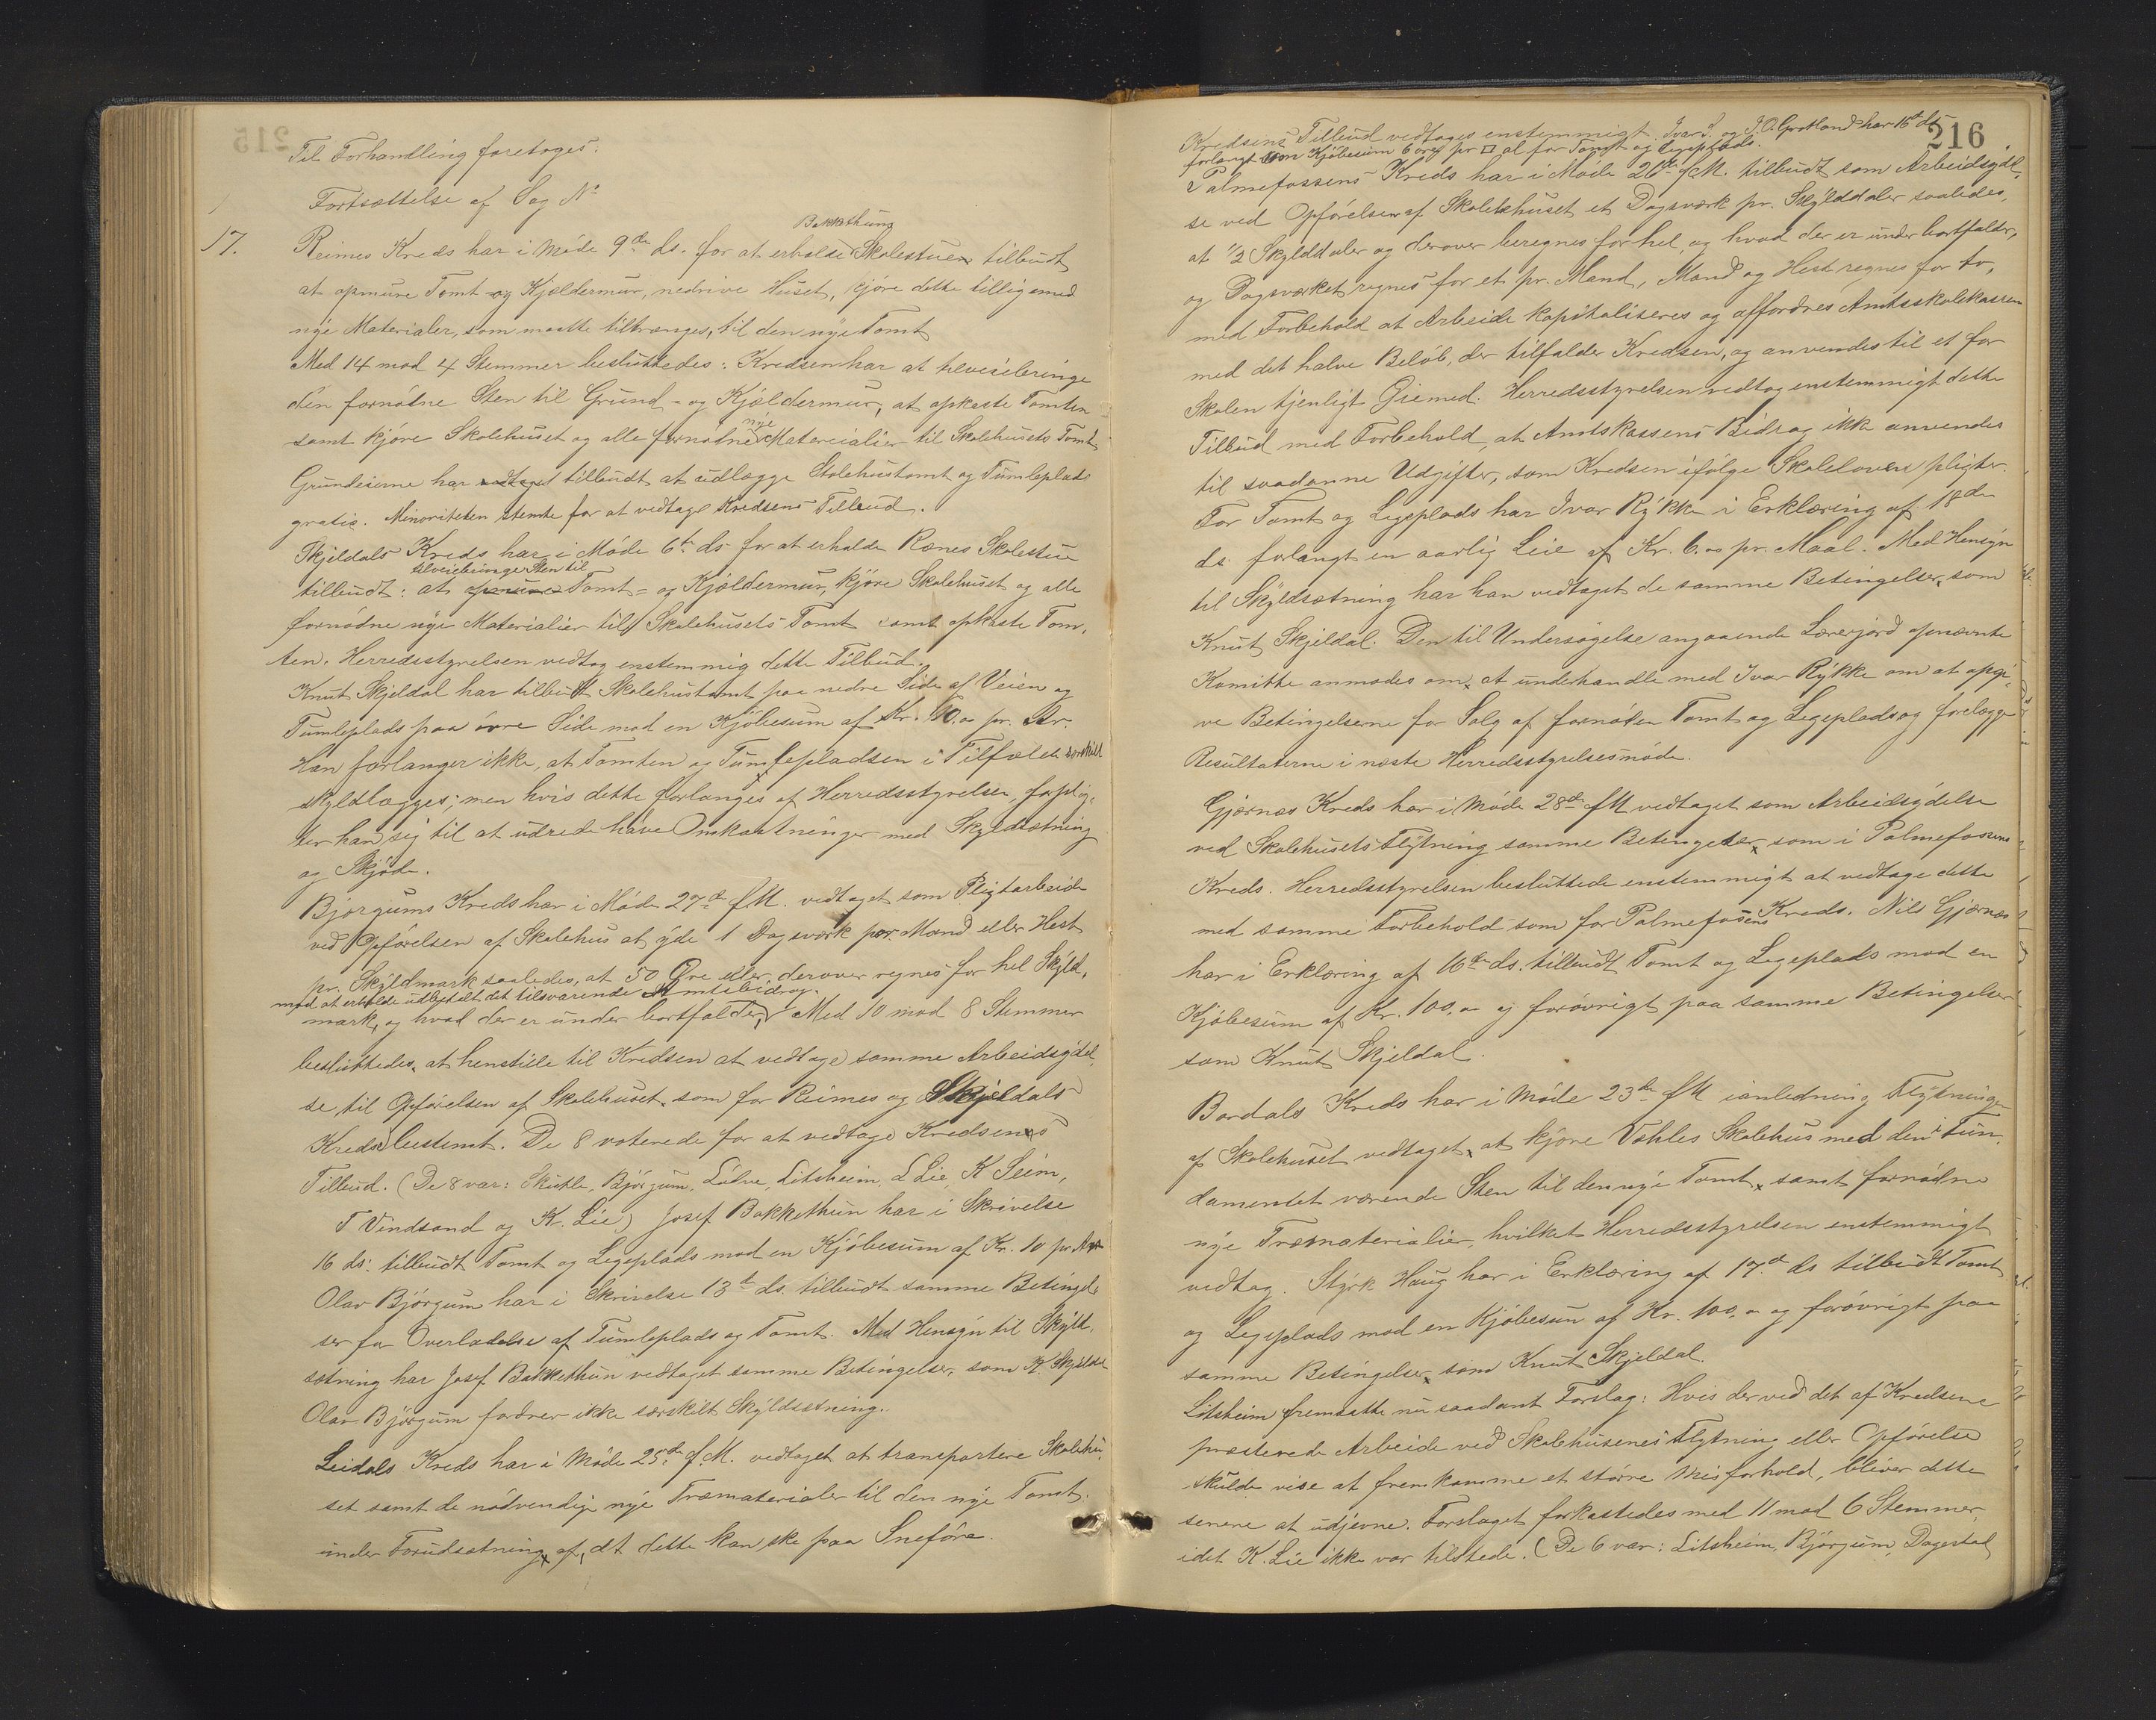 Til Forhandling foretoges:
Fortsættelse af Sag No
17. Reimes Kreds har i Møde 9de ds. for at erholde Bakkethuns Skolestue tilbudt
at opmure Tomt og Kjældermur, nedrive Huset, kjøre dette tilligemed
nye Materialer, som maatte tiltrænges, til den nye Tomt
Med 14 mod 4 Stemmer besluttedes: Kredsen har at tilveiebringe
den fornødne Sten til Grund- og Kjældermur, at opkaste Tomten
samt kjøre Skolehuset og alle fornødne nye Materialier til Skolehusets Tomt
Grundeierne har vedtaget tilbudt at udlægge Skolehustomt og Tumleplads
gratis. Minoriteten stemte for at vedtage Kredsens Tilbud.
Skjeldals Kreds har i Møde 6te ds for at erholde Rønes Skolestue
tilbudt: at opmure tilveiebringe Sten til Tomt- og Kjældermur, kjøre Skolehuset og alle
fornødne nye Materialier til Skolehusets Tomt samt opkaste Tom-
ten. Herredsstyrelsen vedtog enstemmig dette Tilbud.
Knut Skjeldal har tilbudt Skolehustomt paa nedre Side af Veien og
Tumleplads paa øvre Side mod en Kjøbesum af Kr. 10.00 pr. Ar.
Han forlanger ikke, at Tomten og Tumlepladsen i Tilfælde særskilt
skyldlægges; men hvis dette forlanges af Herredsstyrelsen, forplig-
ter han sig til at udrede halve Omkostninger med Skyldsætning
og Skjøde.
Bjørgums Kreds har i Møde 27de f.M. vedtaget som Pligtarbeide
ved Opførelsen af Skolehus at yde 1 Dagsværk pr. Mand eller Hest
pr. Skyldmark saaledes, at 50 Øre eller derover regnes for hel Skyld-
mod at erholde udbetalt det tilsvarende Amtsbidrag.
mark, og hvad der er under bortfalder, Med 10 mod 8 Stemmer
besluttedes, at henstille til Kredsen at vedtage samme Arbeidsydel-
se til Opførelsen af Skolehuset, som for Reimes og Skjeldals
Kreds bestemt. De 8 voterede for at vedtage Kredsens
Tilbud. (De 8 var: Skutle, Bjørgum, Lidve, Litsheim, L Lie, K Seim,
T Vindsand og K. Lie) Josef Bakkethun har i Skrivelse
16 ds. tilbudt Tomt og Legeplads mod en Kjøbesum af Kr. 10 pr Ar
Olav Bjørgum har i Skrivelse 13de ds. tilbudt samme Betingel-
ser for Overladelse af Tumleplads og Tomt. Med Hensyn til Skyld-
sætning har Josef Bakkethun vedtaget samme Betingelser, som K. Skjeldal
Olav Bjørgum fordrer ikke særskilt Skyldsætning.
Leidals Kreds har i Møde 25de f.M. vedtaget at transportere Skolehu-
set samt de nødvendige nye Træmaterialer til den nye Tomt
under Forudsætning af, at dette kan ske paa Sneføre.
216
Kredsens Tilbud vedtages enstemmigt. Ivar S. og J.O. Grotland har 16de ds
forlangt som Kjøbesum 6 øre pr □ al for Tomt og Legeplads.
Palmefossens Kreds har i Møde 26de f.M. tilbudt som Arbeidsydel-
se ved Opførelsen af Skolehuset et Dagsværk pr. Skylddaler saaledes,
at 1/2 Skylddaler og derover beregnes for hel, og hvad der er under bortfalder,
og Dagsværket regnes for et pr. Mand, Mand og Hest regnes for to,
med Forbehold at Arbeide kapitaliseres og affordres Amtsskolekassen
med det halve Beløb, der tilfalder Kredsen, og anvendes til et for
Skolen tjenligt Øiemed. Herredsstyrelsen vedtog enstemmigt dette
Tilbud med Forbehold, at Amtskassens Bidrag ikke anvendes
til saadanne Udgifter, som Kredsen ifølge Skoleloven pligter.
For Tomt og Legeplads har Ivar Rykke i Erklæring af 18de
ds. forlangt en aarlig Leie af Kr. 6.00 pr. Maal. Med Hensyn
til Skyldsætning har han vedtaget de samme Betingelser, som
Knut Skjeldal. Den til Undersøgelse angaaende Lærerjord opnævnte
Komitte anmodes om, at underhandle med Ivar Rykke om at opgi-
ve Betingelserne for Salg af fornøden Tomt og Legeplads og forelægge
Resultaterne i næste Herredsstyrelsesmøde.
Gjærnes Kreds har i Møde 28de f.M vedtaget som Arbeidsydelse
ved Skolehusets Flytning samme Betingelser, som i Palmefossens
Kreds. Herredsstyrelsen besluttede enstemmigt at vedtage dette
med samme Forbehold som for Palmefossens Kreds. Nils Gjærnes
har i Erklæring af 16de ds. tilbudt Tomt og Legeplads mod en
Kjøbesum af Kr. 100.00 og forøvrigt paa samme Betingelser
som Knut Skjeldal.
Bordals Kreds har i Møde 23de f.M ianledning Flytningen
af Skolehuset vedtaget, at kjøre Vahles Skolehus med den i Fun-
damentet værende Sten til den nye Tomt, samt fornødne
nye Træmaterialier, hvilket Herredsstyrelsen enstemmigt
vedtog. Styrk Haug har i Erklæring af 17de ds tilbudt Tomt
og Legeplads mod en Kjøbesum af Kr. 100.00 og forøvrigt paa
samme Betingelser, som Knut Skjeldal.
Litsheim fremsatte nu saadant Forslag: Hvis der ved det af Kredsene
præsterede Arbeide ved Skolehusenes Flytning eller Opførelse
skulde vise at fremkomme et større Misforhold, bliver dette
senere at udjevne. Forslaget forkastedes med 11 mod 6 Stemmer,
idet K. Lie ikke var tilstede. (De 6 var: Litsheim, Bjørgum, Dagestad